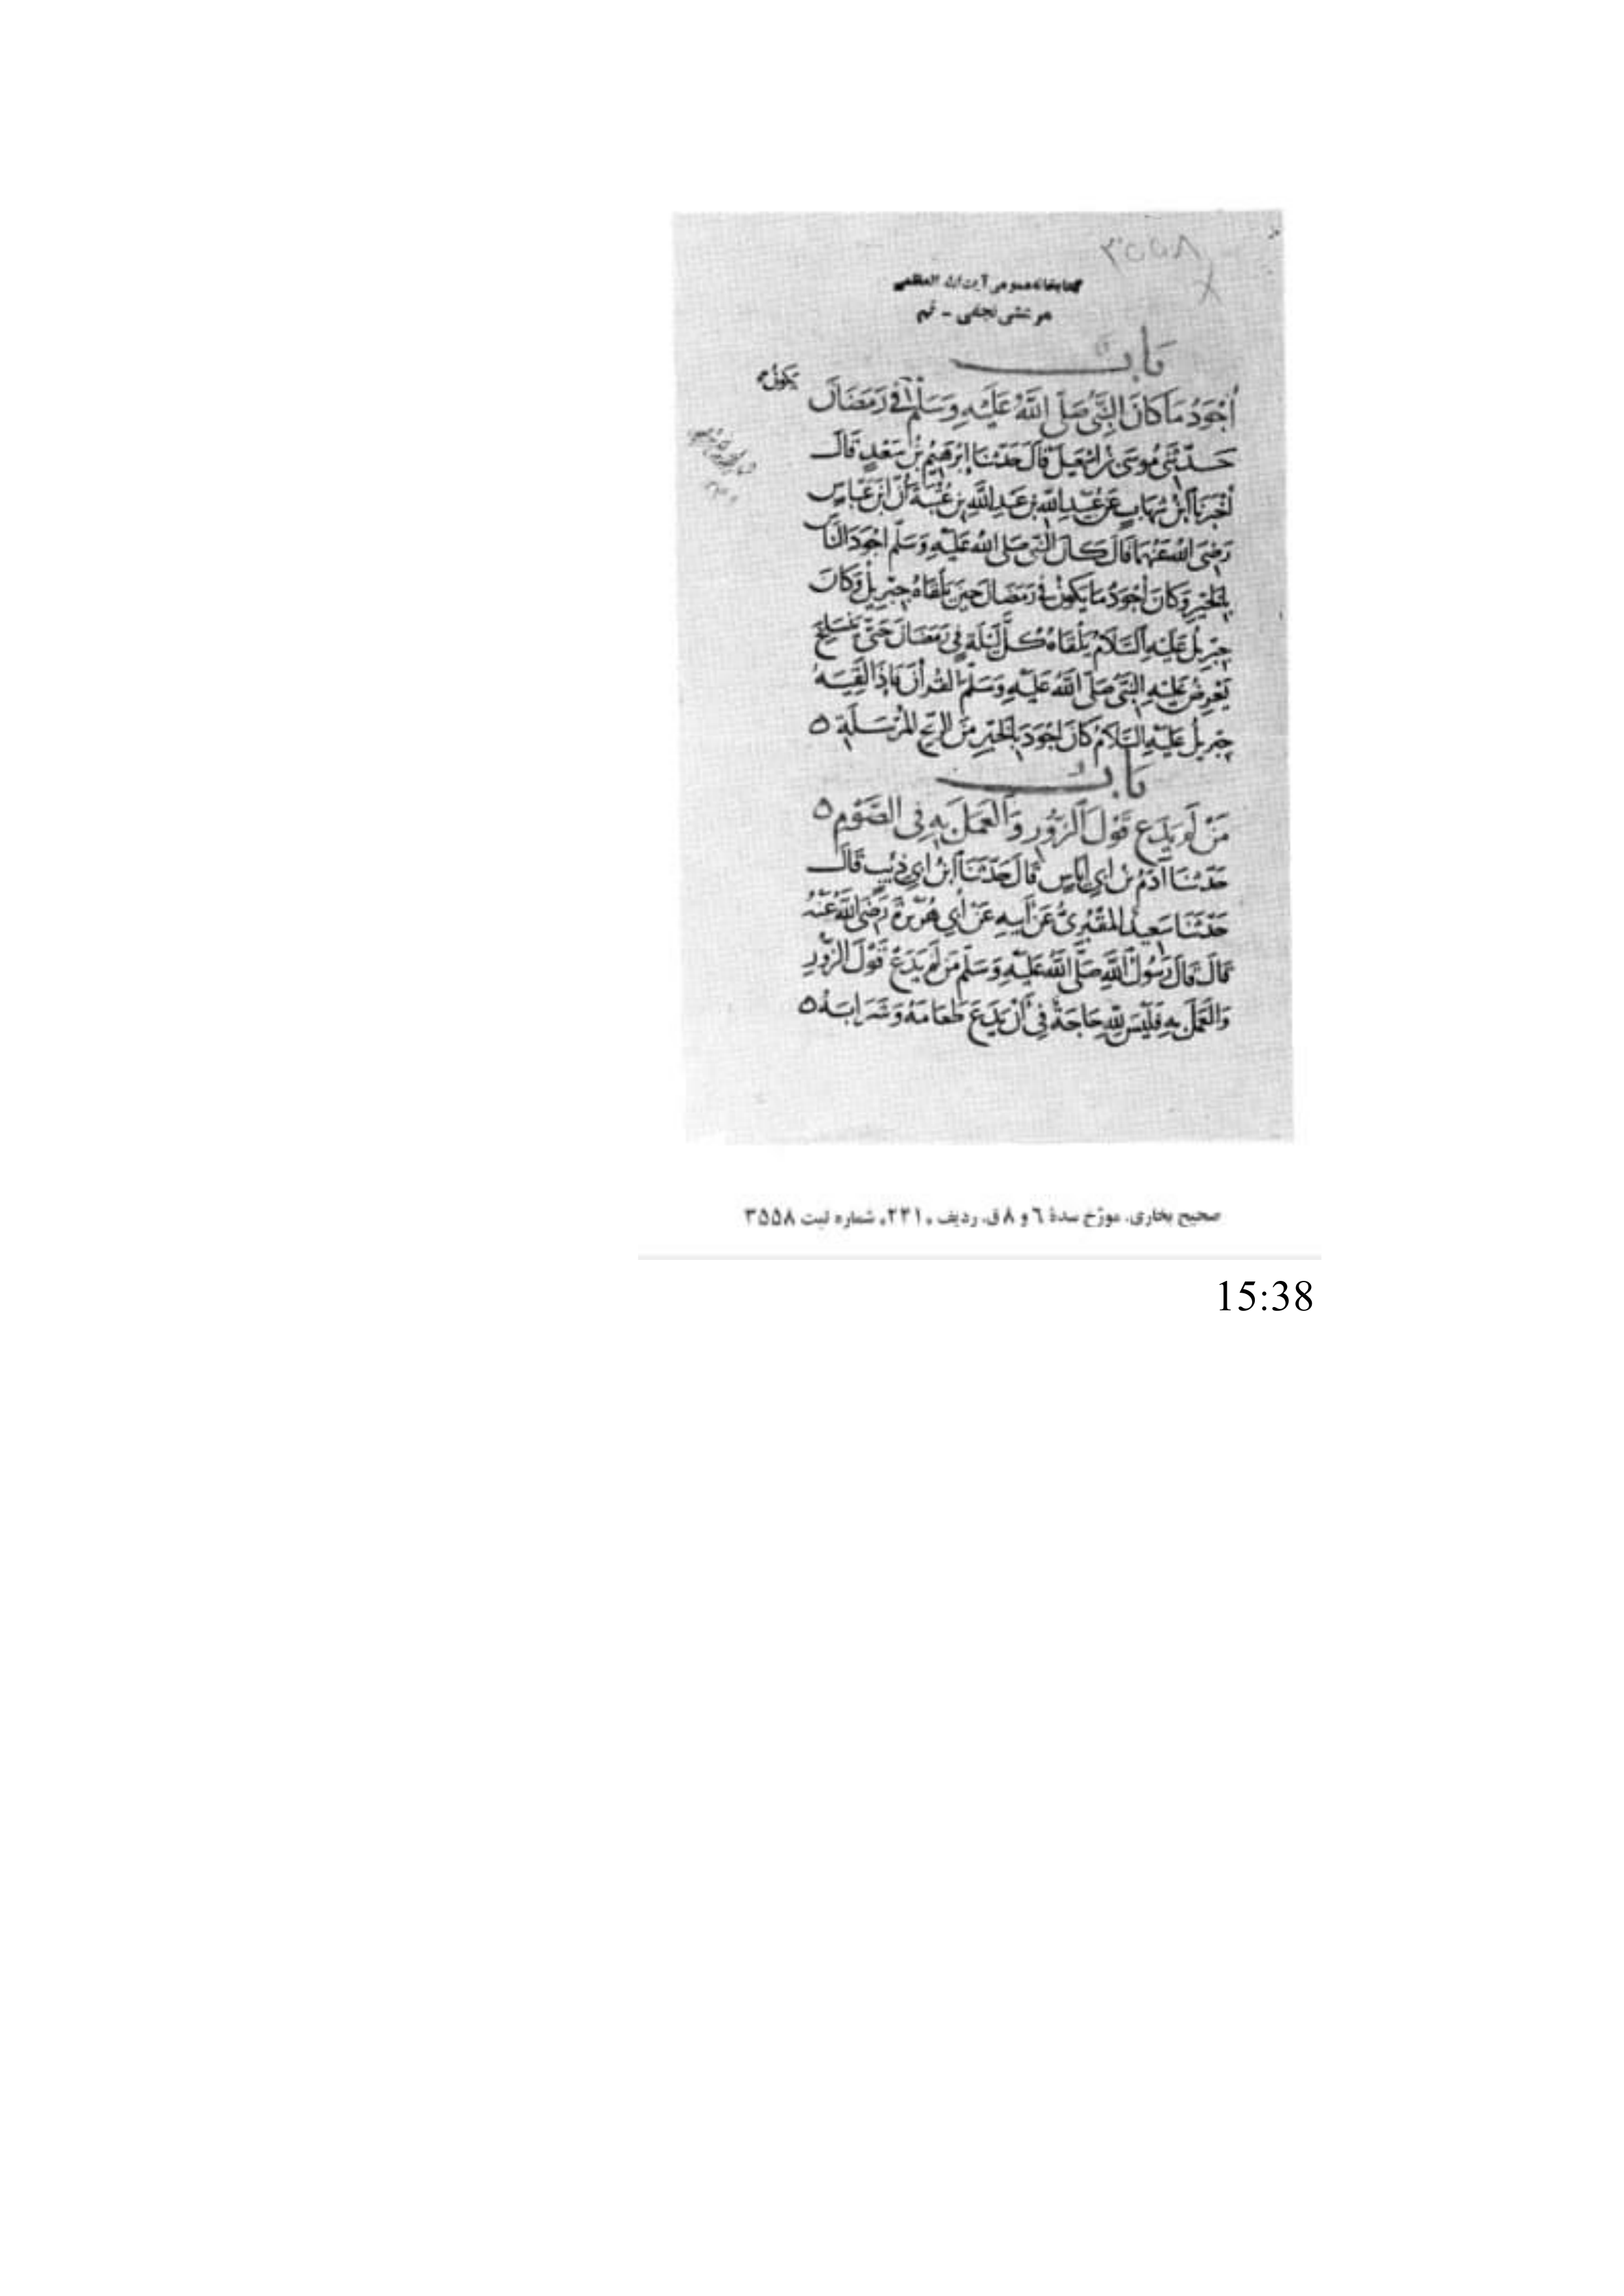 ٣٥٥٨
کتابخانه عمومی آیت الله العظمی
مرعشی نجفی - قم
بَابُ
يكون
أَجْوَدُ مَا كَانَ النَّبِيُّ صَلَّى اللَّهُ عَلَيْهِ وَسَلَّمَ فِي رَمَضَانَ
حَدَّثَنِي مُوسَى بْنُ إِسْمَعِيلَ قَالَ حَدَّثَنَا إِبْرَهِيمُ بْنُ سَعْدٍ قَالَ
أَخْبَرَنَا ابْنُ شِهَابٍ عَنْ عُبَيْدِ اللَّهِ بْنِ عَبْدِ اللَّهِ بْنِ عُتْبَةَ أَنَّ ابْنَ عَبَّاسٍ
رَضِيَ اللَّهُ عَنْهُمَا قَالَ كَانَ النَّبِيُّ صَلَّى اللَّهُ عَلَيْهِ وَسَلَّمَ أَجْوَدَ النَّاسِ
بِالْخَيْرِ وَكَانَ أَجْوَدُ مَا يَكُونُ فِي رَمَضَانَ حِينَ يَلْقَاهُ جِبْرِيلُ وَكَانَ
جِبْرِيلُ عَلَيْهِ السَّلَامُ يَلْقَاهُ كُلَّ لَيْلَةٍ فِي رَمَضَانَ حَتَّى يَنْسَلِخَ
يَعْرِضُ عَلَيْهِ النَّبِيُّ صَلَّى اللَّهُ عَلَيْهِ وَسَلَّمَ الْقُرْآنَ فَإِذَا لَقِيَهُ
جِبْرِيلُ عَلَيْهِ السَّلَامُ كَانَ أَجْوَدَ بِالْخَيْرِ مِنَ الرِّيحِ الْمُرْسَلَةِ ٥
بَابُ
مَنْ لَمْ يَدَعْ قَوْلَ الزُّورِ وَالْعَمَلَ بِهِ فِي الصَّوْمِ ٥
حَدَّثَنَا آدَمُ بْنُ أَبِي إِيَاسٍ قَالَ حَدَّثَنَا ابْنُ أَبِي ذِئْبٍ قَالَ
حَدَّثَنَا سَعِيدٌ الْمَقْبُرِيُّ عَنْ أَبِيهِ عَنْ أَبِي هُرَيْرَةَ رَضِيَ اللَّهُ عَنْهُ
قَالَ قَالَ رَسُولُ اللَّهِ صَلَّى اللَّهُ عَلَيْهِ وَسَلَّمَ مَنْ لَمْ يَدَعْ قَوْلَ الزُّورِ
وَالْعَمَلَ بِهِ فَلَيْسَ لِلَّهِ حَاجَةٌ فِي أَنْ يَدَعَ طَعَامَهُ وَشَرَابَهُ ٥
صحیح بخاری، مورّخ سدهٔ ٦ و ٨ ق، ردیف ٢٣١، شماره ثبت ٣٥٥٨
15:38